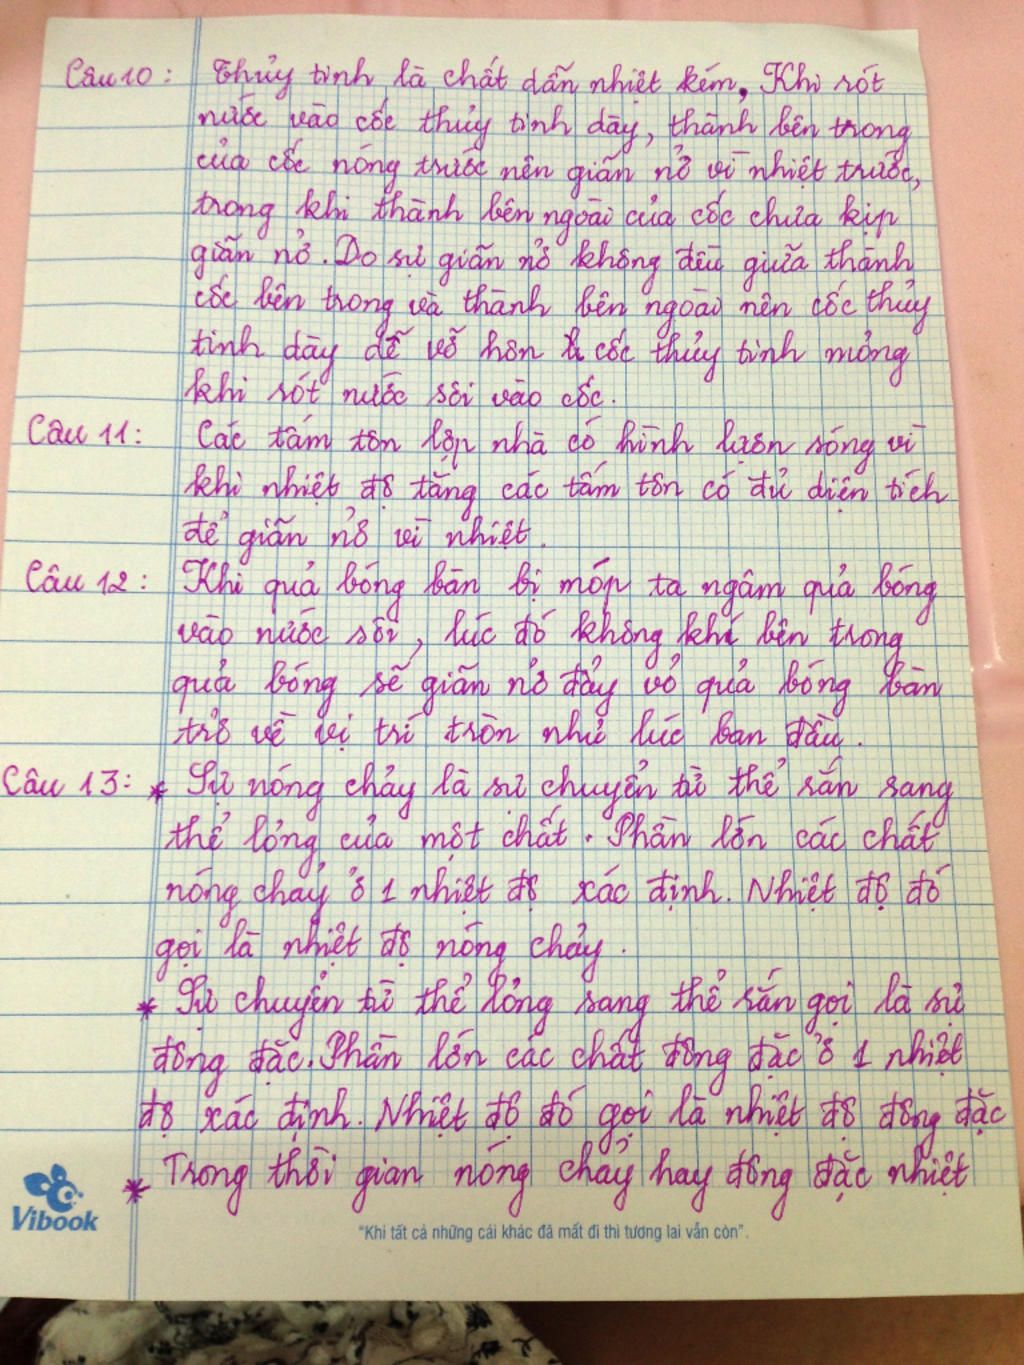 Câu 10: Thủy tinh là chất dẫn nhiệt kém. Khi rót
nước vào cốc thủy tinh dày, thành bên trong
của cốc nóng trước nên giãn nở vì nhiệt trước,
trong khi thành bên ngoài của cốc chưa kịp
giãn nở. Do sự giãn nở không đều giữa thành
cốc bên trong và thành bên ngoài nên cốc thủy
tinh dày dễ vỡ hơn là cốc thủy tinh mỏng
khi rót nước sôi vào cốc.
Câu 11: Các tấm tôn lợp nhà có hình lượn sóng vì
khi nhiệt độ tăng các tấm tôn có đủ diện tích
để giãn nở vì nhiệt.
Câu 12: Khi quả bóng bàn bị móp ta ngâm quả bóng
vào nước sôi, lúc đó không khí bên trong
quả bóng sẽ giãn nở đẩy vỏ quả bóng bàn
trở về vị trí tròn như lúc ban đầu.
Câu 13: * Sự nóng chảy là sự chuyển từ thể rắn sang
thể lỏng của một chất. Phần lớn các chất
nóng chảy ở 1 nhiệt độ xác định. Nhiệt độ đó
gọi là nhiệt độ nóng chảy.
* Sự chuyển từ thể lỏng sang thể rắn gọi là sự
đông đặc. Phần lớn các chất đông đặc ở 1 nhiệt
độ xác định. Nhiệt độ đó gọi là nhiệt độ đông đặc
* Trong thời gian nóng chảy hay đông đặc nhiệt
Vibook
"Khi tất cả những cái khác đã mất đi thì tương lai vẫn còn".